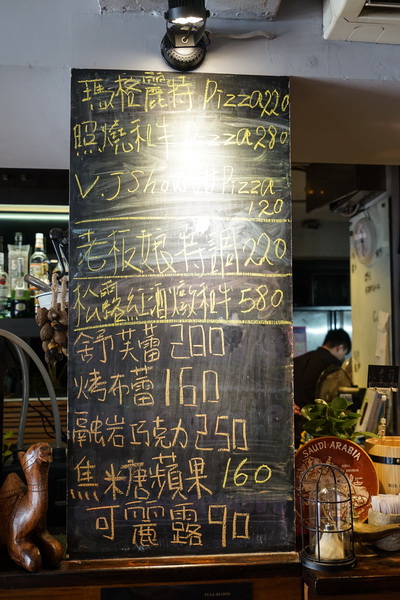 瑪格麗特 Pizza 220
照燒和牛 Pizza 280
VJ Show Pizza
120
老板娘特調 220
松露紅酒燉和牛 580
舒芙蕾 200
烤布蕾 160
融岩巧克力 250
焦糖蘋果 160
可麗露 90
SAUDI ARABIA